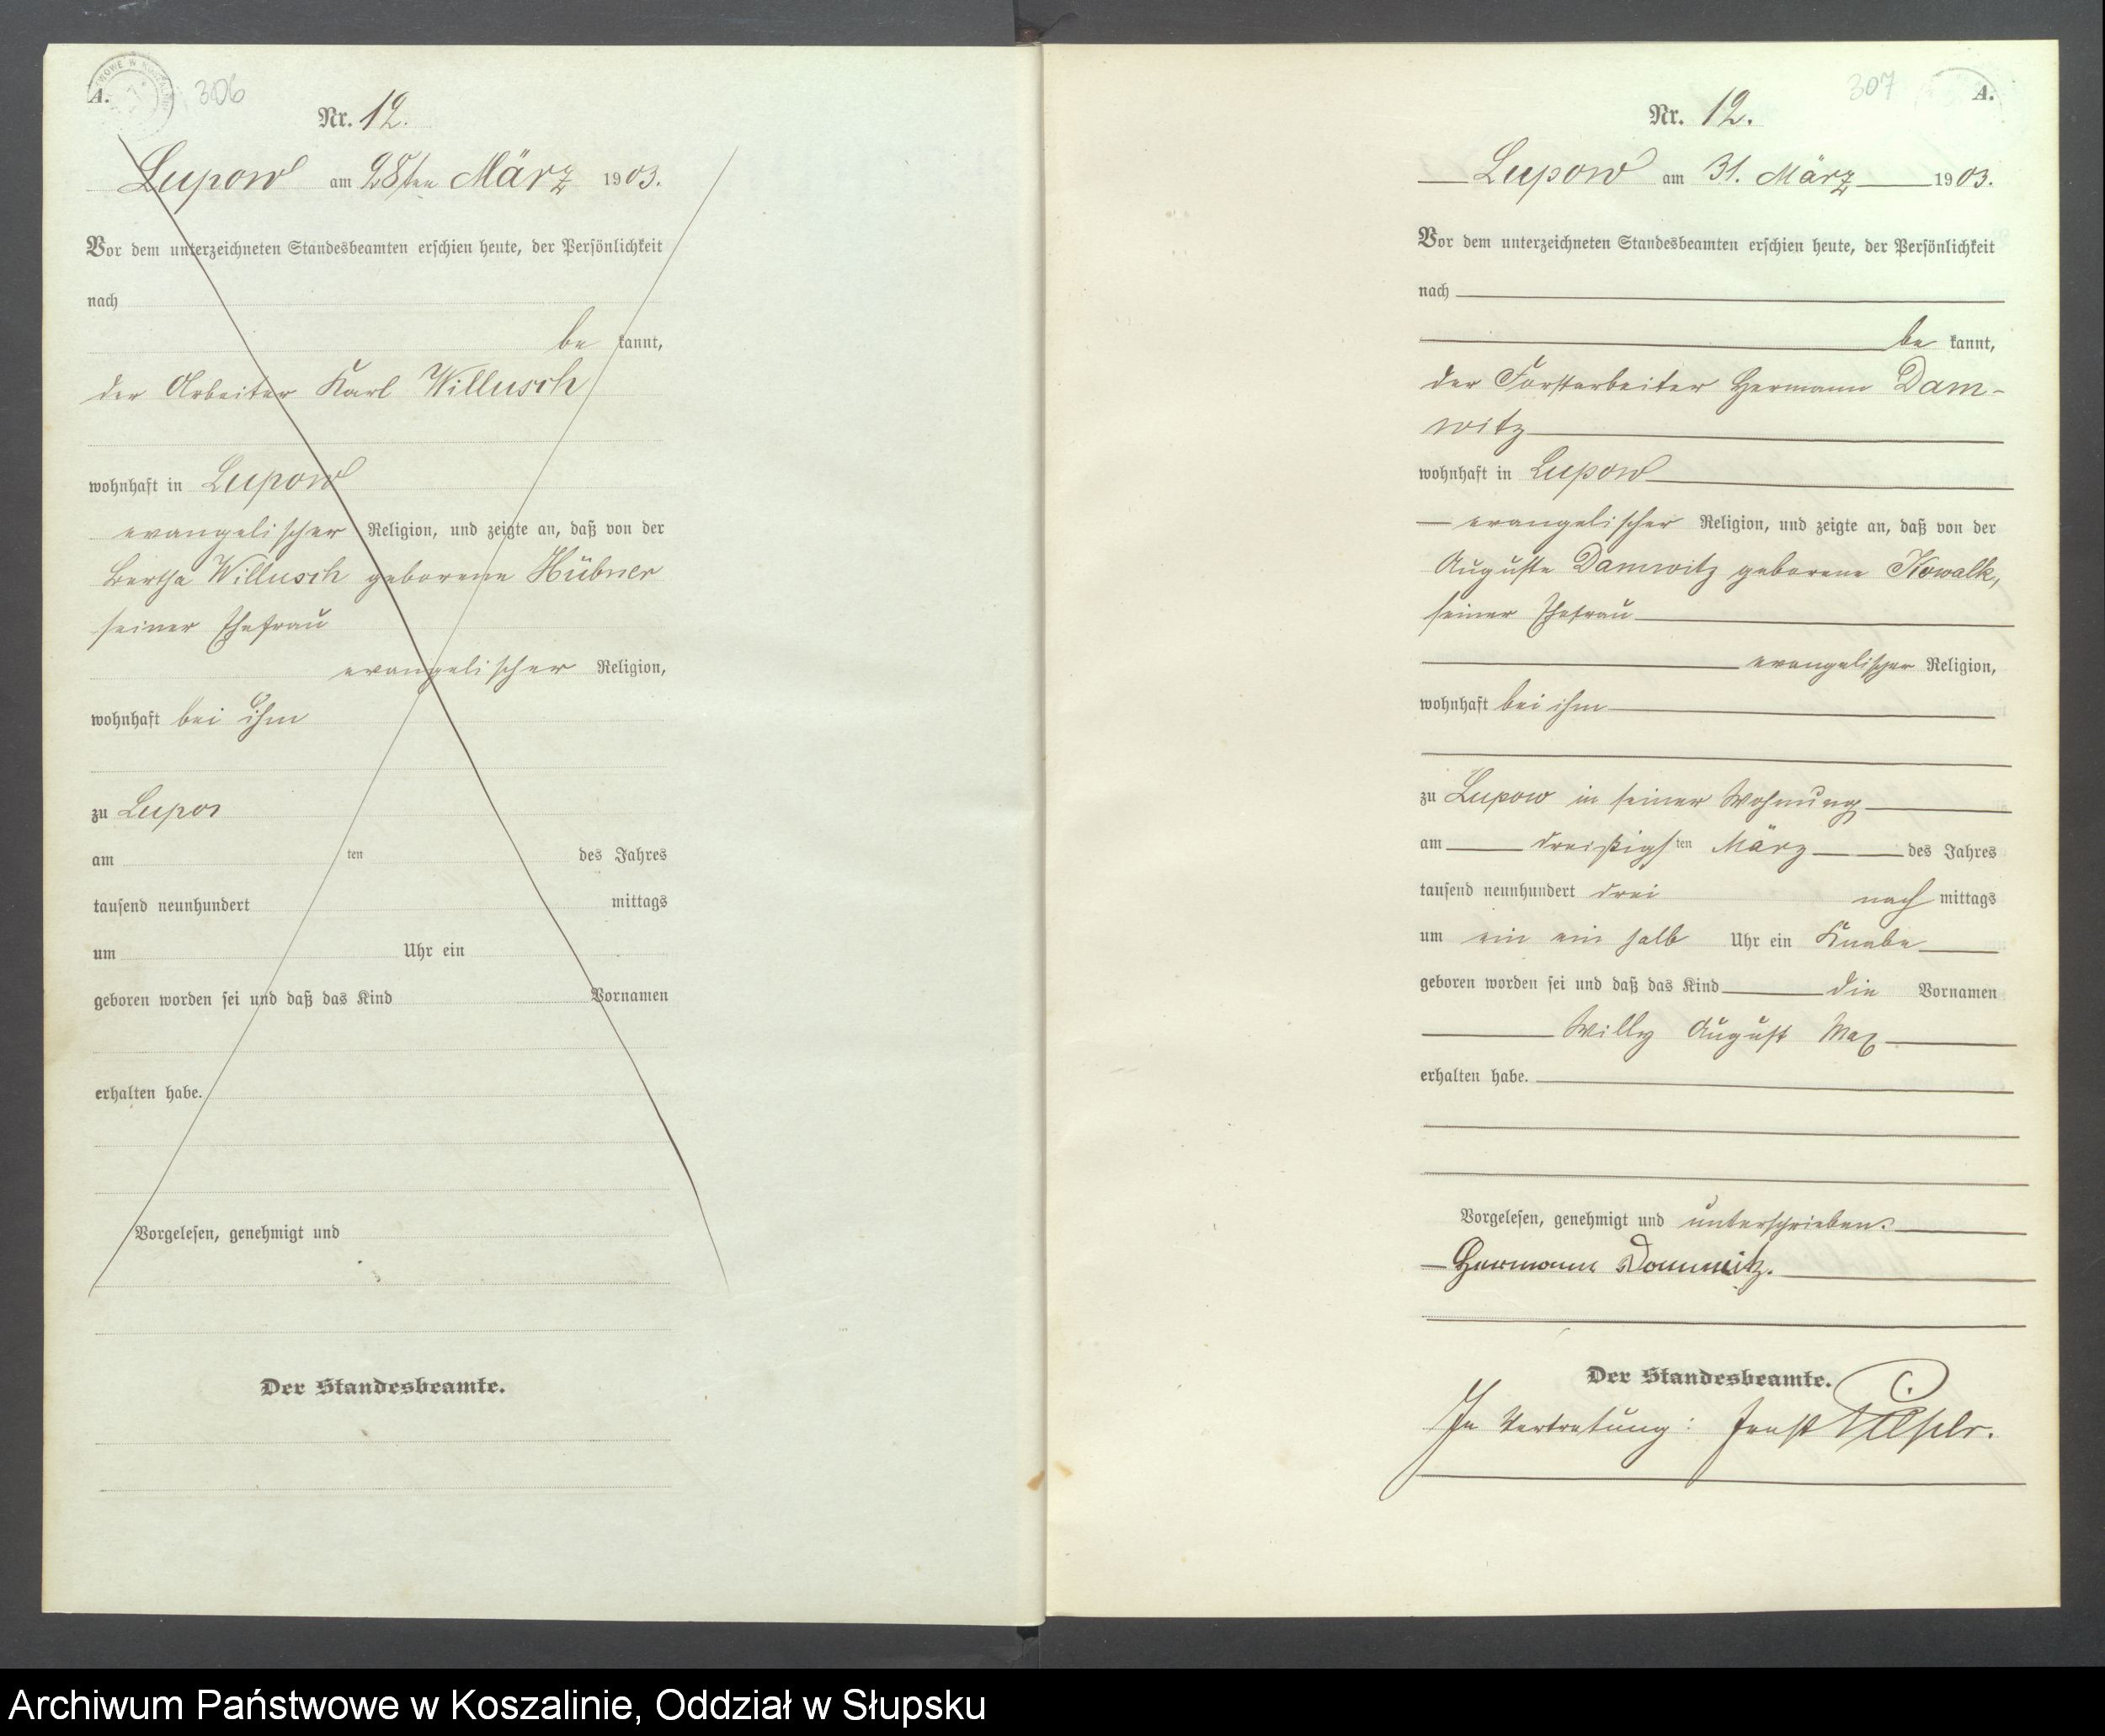 A.
306
Nr. 12.
Lupow am 28ten März 1903.
Vor dem unterzeichneten Standesbeamten erschien heute, der Persönlichkeit
nach
be kannt,
der Arbeiter Karl Willusch
wohnhaft in Lupow
evangelischer Religion, und zeigte an, daß von der
Bertha Willusch geborene Hübner
seiner Ehefrau
evangelischer Religion,
wohnhaft bei ihm
zu Lupow
am ten des Jahres
tausend neunhundert mittags
um Uhr ein
geboren worden sei und daß das Kind Vornamen
erhalten habe.
Vorgelesen, genehmigt und
Der Standesbeamte.
307
A.
Nr. 12.
Lupow am 31. März 1903.
Vor dem unterzeichneten Standesbeamten erschien heute, der Persönlichkeit
nach
be kannt,
der Forstarbeiter Hermann Dam-
witz
wohnhaft in Lupow
evangelischer Religion, und zeigte an, daß von der
Auguste Damwitz geborene Kowalk,
seiner Ehefrau
evangelischer Religion,
wohnhaft bei ihm
zu Lupow in seiner Wohnung
am dreißigsten März des Jahres
tausend neunhundert drei nach mittags
um ein ein halb Uhr ein Knabe
geboren worden sei und daß das Kind die Vornamen
Willy August Max
erhalten habe.
Vorgelesen, genehmigt und unterschrieben.
Hermann Dammitz.
Der Standesbeamte.
In Vertretung: Ernst
Archiwum Państwowe w Koszalinie, Oddział w Słupsku